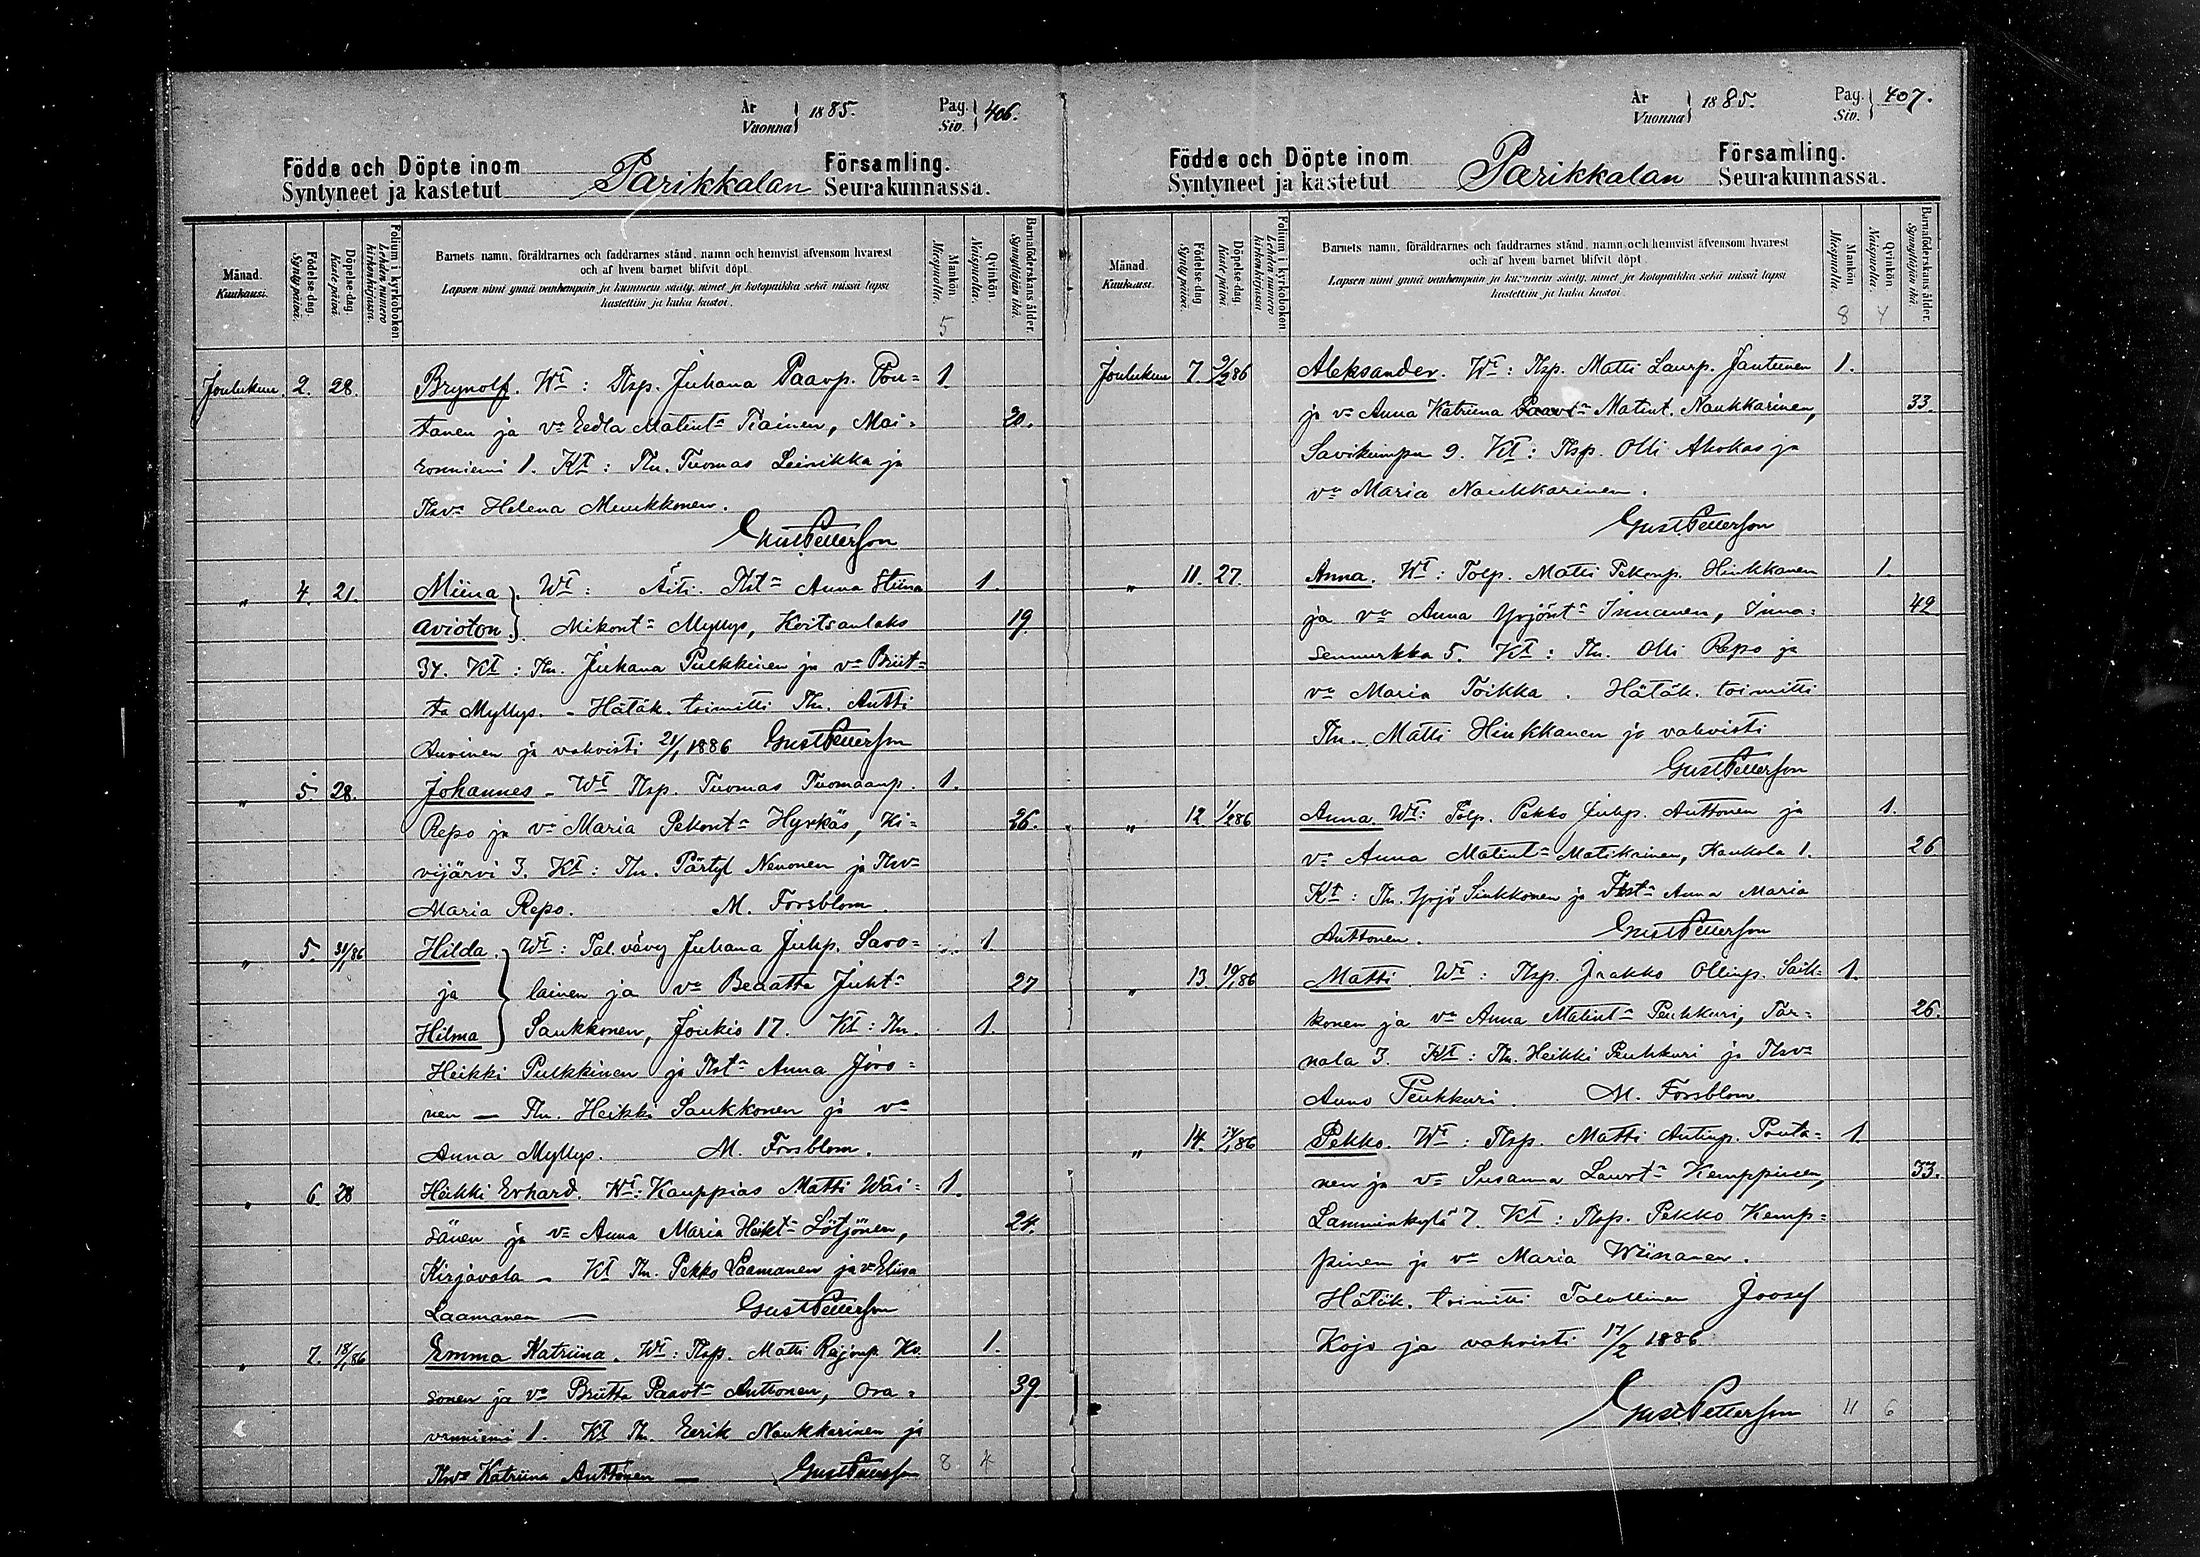 År Vuonna 1885. Pag. Siv. 406.
Födde och Döpte inom Parikkalan Församling.
Syntyneet ja kastetut Seurakunnassa.
Månad. Kuukausi.
Födelse-dag. Syntypäivä.
Döpelse-dag. Kastepäivä.
Folium i kyrkoboken Lehden numero kirkonkirjassa.
Barnets namn, föräldrarnes och faddrarnes stånd, namn och hemvist äfvensom hvarest
och af hvem barnet blifvit döpt
Lapsen nimi ynnä vanhempain ja kummein sääty, nimet ja kotopaikka sekä missä lapsi
kastettiin ja kuka kastoi.
Mankön Miespuolia.
Qvinkön Naispuolia.
Barnaföderskans ålder. Synnyttäjän ikä.
5
Joulukuu. 2. 28. Brynolf. Wt: Itsp. Juhana Paavp. Pon= 1.
tanen ja vo Eedla Matint. Tiainen, Moi= 30.
ronniemi 1. Kt: Tln. Tuomas Leinikka ja
Itsvo Helena Munkkonen.
Gust Petterson
„ 4. 21. Miina Wt: Äiti. Itst. Anna Stiina 1.
avioton Mikont. Myllys, Koitsanlaks 19.
34. Kt: Tln. Juhana Pulkkinen ja vo Briit=
ta Myllys. - Hätäk. toimitti Tln. Antti
Auvinen ja vahvisti 21/1 1886 Gust Petterson
„ 5. 28. Johannes - Wt Itsp. Tuomas Tuomaanp. 1.
Repo ja vo Maria Pekont. Hyrkäs, Ki= 26.
vijärvi 3. Kt: Tln. Pärtyl Nenonen ja Itsvo
Maria Repo. M. Forsblom.
„ 5. 31/1 86 Hilda Wt: Tal. vävy Juhana Juhp. Savo= 1.
ja lainen ja vo Beaatta Juht. 27
Hilma Saukkonen, Joukio 17. Kt: Tln. 1.
Heikki Pulkkinen ja Itst. Anna Joro=
nen — Tln. Heikki Saukkonen ja vo
Anna Myllys. M. Forsblom.
„ 6. 28 Heikki Erhard. Wt: Kauppias Matti Wäi= 1.
sänen ja vo Anna Maria Heikt. Lötjönen, 24.
Kirjavala - Kt Tln. Pekko Laamanen ja vo Eliisa
Laamanen — Gust Petterson
„ 7. 18/1 86 Emma Katriina. Wt: Itsp. Matti Reijonp. Ko 1.
sonen ja vo Briitta Paavot. Anttonen, Ora= 39
vanniemi 1. Kt Tln. Eerik Naukkarinen ja
Itsvo Katriina Anttonen — Gust Petterson 8 4
År Vuonna 1885. Pag. Siv. 407.
Födde och Döpte inom Parikkalan Församling.
Syntyneet ja kastetut Seurakunnassa.
Månad. Kuukausi.
Födelse-dag. Syntypäivä.
Döpelse-dag. Kastepäivä.
Folium i kyrkoboken Lehden numero kirkonkirjassa
Barnets namn, föräldrarnes och faddrarnes stånd, namn och hemvist äfvensom hvarest
och af hvem barnet blifvit döpt
Lapsen nimi ynnä vanhempain ja kummein sääty, nimet ja kotopaikka sekä missä lapsi
kastettiin ja kuka kastoi.
Mankön Miespuolia
Qvinkön Naispuolia.
Barnaföderskans ålder. Synnyttäjän ikä
8 4
Joulukuu 7. 9/2 86 Aleksander. Wt: Itsp. Matti Laurp. Jantunen 1.
ja vo Anna Katriina Matint. Naukkarinen, 33.
Savikumpu 9. Kt: Itsp. Olli Ahokas ja
vo Maria Naukkarinen.
Gust Petterson
„ 11. 27. Anna. Wt: Tolp. Matti Pekonp. Hinkkanen 1.
ja vo Anna Yrjönt. Innanen, Inna= 42
sennurkka 5. Kt: Tln. Olli Repo ja
vo Maria Toikka. Hätäk. toimitti
Tln. Matti Hinkkanen ja vahvisti
Gust Petterson
„ 12 1/2 86 Anna Wt: Tolp. Pekko Juhp. Anttonen ja 1.
vo Anna Matint. Matikainen, Kaukola 1. 26
Kt: Tln. Yrjö Sinkkonen ja Itst. Anna Maria
Anttonen. Gust Petterson
„ 13. 10/1 86 Matti Wt: Itsp. Jaakko Ollinp. Saik= 1.
konen ja vo Anna Matint. Peuhkuri, Tar= 26.
nala 3. Kt: Tln. Heikki Peuhkuri ja Itsvo
Anna Peuhkuri. M. Forsblom
„ 14. 14/1 86 Pekko. Wt: Itsp. Matti Antinp. Ponta= 1.
nen ja vo Susanna Laurt. Kemppinen, 33.
Lamminkylä 7. Kt: Itsp. Pekko Kemp=
pinen ja vo Maria Wiinanen.
Hätäk. toimitti Talollinen Joosef
Kojo ja vahvisti 17/2 1886
Gust Petterson 11 6